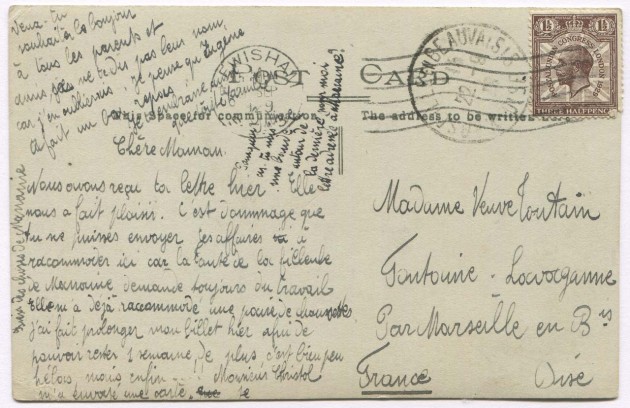 Veux-tu
souhaiter le bonjour
à tous les parents et
amis je ne te dis pas leur nom,
car j'en oublierais. Je pense qu'Eugène
se fait un bon repos
POST CARD
This space for communication
The address to be written here
Chère Maman.
Nous avons reçu ta lettre hier. Elle
nous a fait plaisir. C'est dommage que
tu ne puisses envoyer tes affaires à
raccommoder ici car la tante de la filleule
de Marraine demande toujours du travail
Elle m'a déjà raccommodé une paire de chaussettes
j'ai fait prolonger mon billet hier afin de
pouvoir rester 1 semaine de plus c'est bien peu
hélas, mais enfin Monsieur Christol
m'a envoyé une carte, je
la dernière
lettre adressée à Marraine?
LEWISHAM
BEAUVAIS
1½ 1½
POSTAL UNION CONGRESS LONDON 1929
THREE HALFPENCE
Madame Veuve Toutain
Fontaine-Lavaganne
Par Marseille en Bis
France Oise